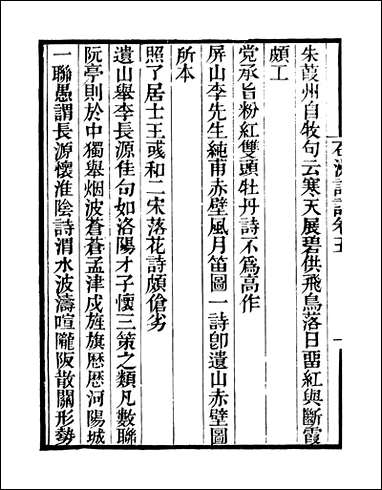 朱葭州自牧句云寒天展碧供飛鳥落日畱紅與斷霞
頗工
党承旨粉紅雙頭牡丹詩不爲高作
屏山李先生純甫赤壁風月笛圖一詩卽遺山赤壁圖
所本
照了居士王彧和二宋落花詩頗傖劣
遺山舉李長源佳句如洛陽才子懷三策之類凡數聯
阮亭則於中獨舉烟波蒼蒼孟津戍旌旗厯厯河陽城
一聯愚謂長源懷淮陰詩渭水波濤喧隴阪散關形勢
石洲詩話卷五
一